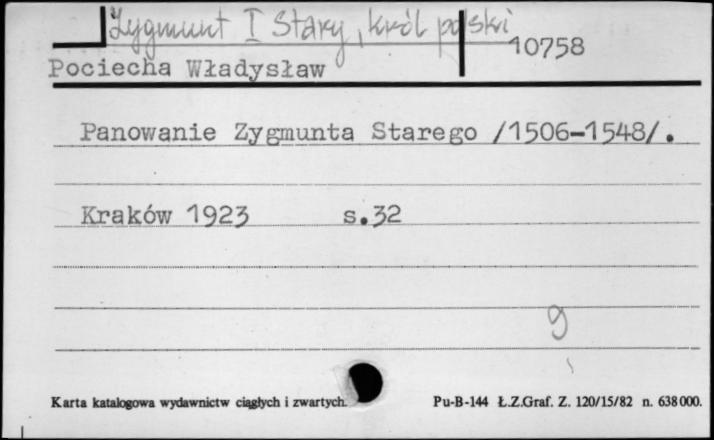 Zygmunt I Stary, król polski
10758
Pociecha Władysław
Panowanie Zygmunta Starego /1506-1548/.
Kraków 1923 s.32
9
Karta katalogowa wydawnictw ciągłych i zwartych. Pu-B-144 Ł.Z.Graf. Z. 120/15/82 n. 638000.